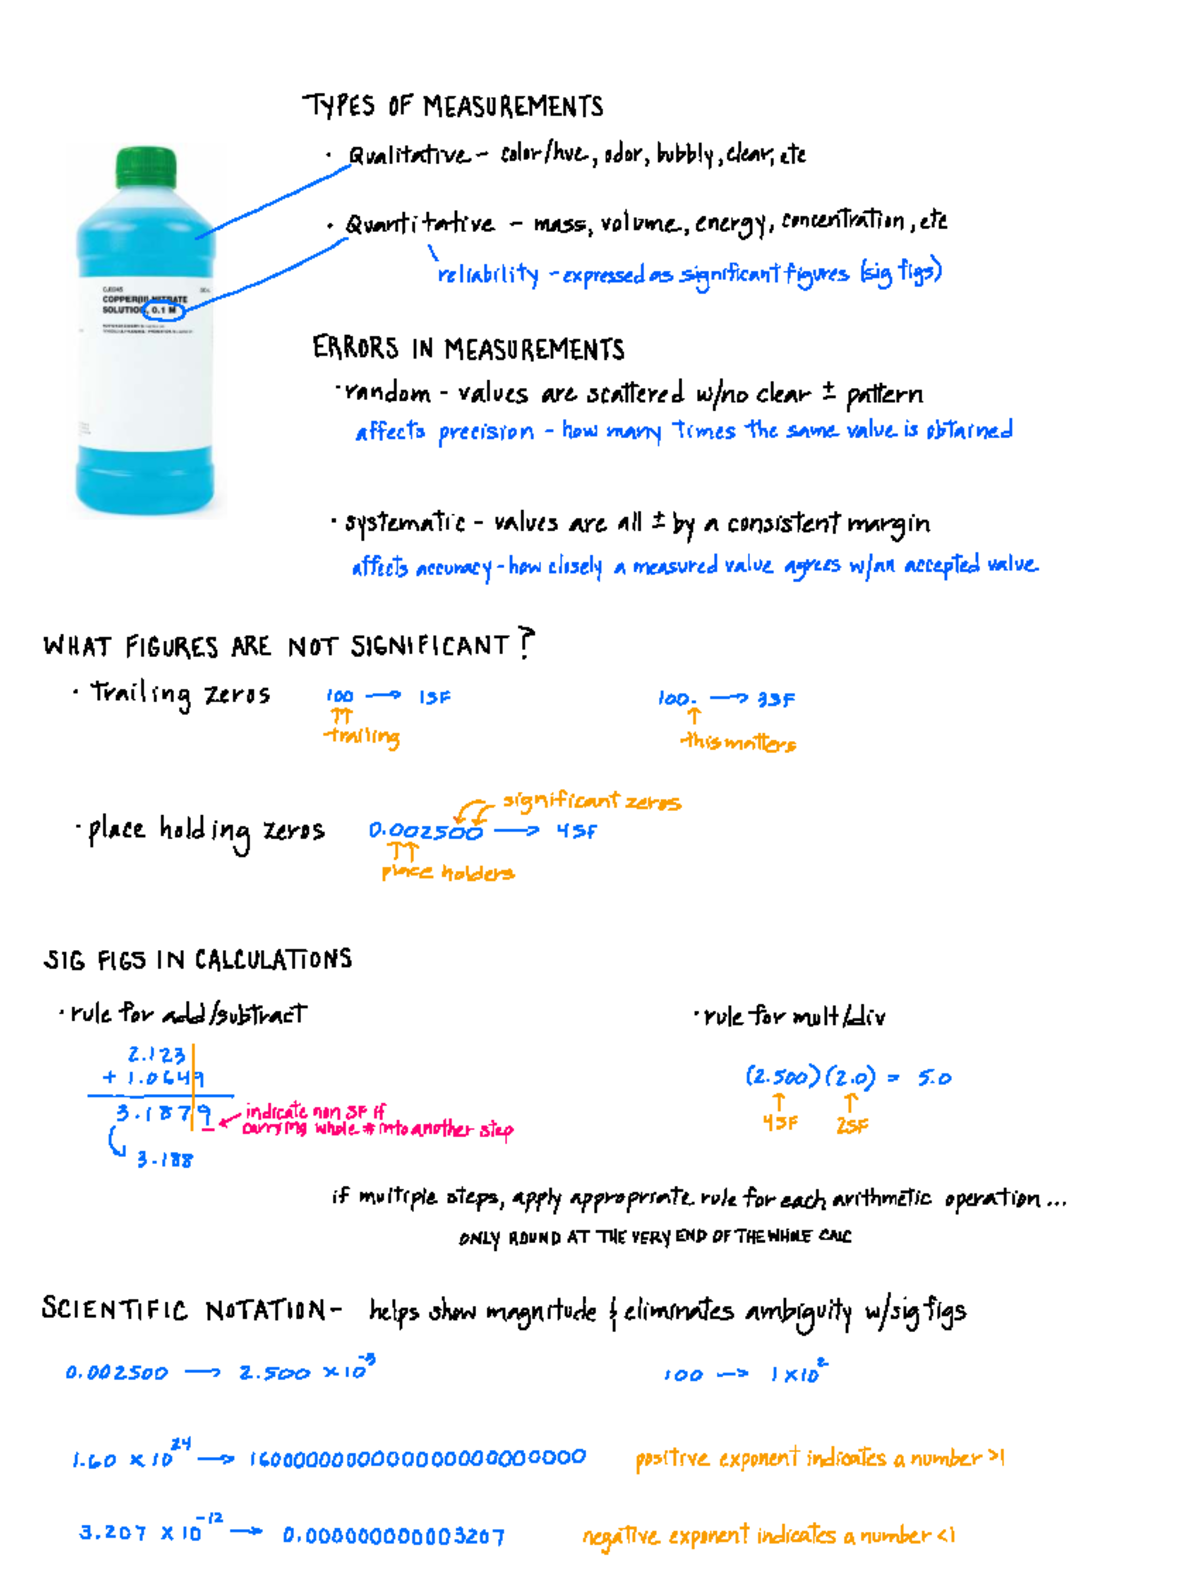 TYPES OF MEASUREMENTS
· Qualitative - color/hue, odor, bubbly, clear, etc
· Quantitative - mass, volume, energy, concentration, etc
reliability - expressed as significant figures (sig figs)
COPPER(II) NITRATE
SOLUTION, 0.1 M
ERRORS IN MEASUREMENTS
· random - values are scattered w/no clear ± pattern
affects precision - how many times the same value is obtained
· systematic - values are all ± by a consistent margin
affects accuracy - how closely a measured value agrees w/an accepted value
WHAT FIGURES ARE NOT SIGNIFICANT?
· trailing zeros 100 → 1SF 100. → 3SF
↑↑ ↑
trailing this matters
significant zeros
· place holding zeros 0.002500 → 4SF
↑↑
place holders
SIG FIGS IN CALCULATIONS
· rule for add/subtract · rule for mult/div
2.123
+ 1.0649 (2.500)(2.0) = 5.0
3.1879 indicate non SF if ↑ ↑
carrying whole # into another step 4SF 2SF
3.188
if multiple steps, apply appropriate rule for each arithmetic operation...
ONLY ROUND AT THE VERY END OF THE WHOLE CALC
SCIENTIFIC NOTATION - helps show magnitude & eliminates ambiguity w/sig figs
0.002500 → 2.500 × 10⁻³ 100 → 1 × 10²
1.60 × 10²⁴ → 1600000000000000000000000 positive exponent indicates a number >1
3.207 × 10⁻¹² → 0.000000000003207 negative exponent indicates a number <1